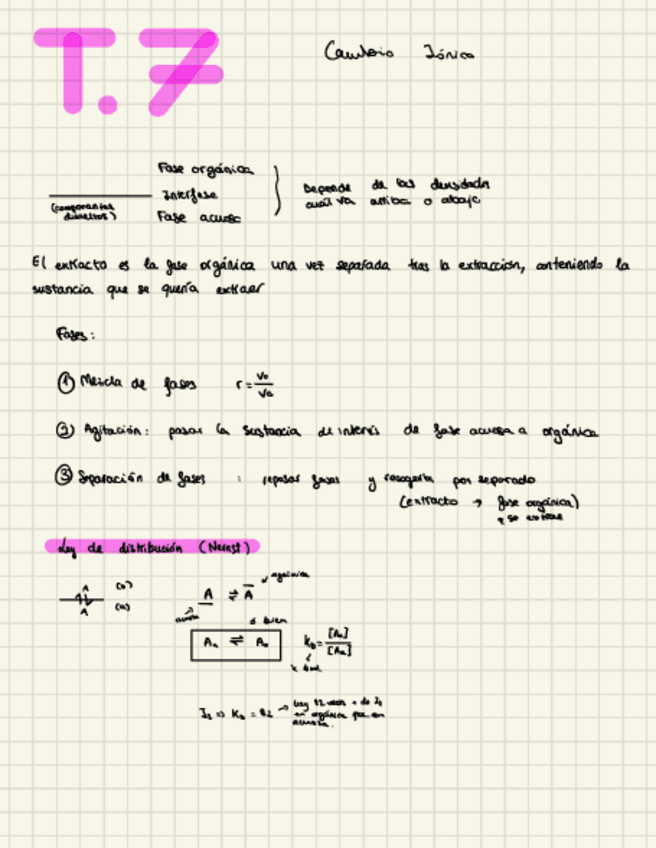 T. 7
Cambio Iónico
Fase orgánica
Interfase
Fase acuosa
(componentes disueltos)
Depende de las densidades
cuál va arriba o abajo
El extracto es la fase orgánica una vez separada tras la extracción, conteniendo la
sustancia que se quería extraer
Fases:
① Mezcla de fases r = Vo/Va
② Agitación: pasar la sustancia de interés de fase acuosa a orgánica
③ Separación de fases : reposar fases y recogerla por separado
(extracto → fase orgánica)
Ley de distribución (Nernst)
A (o)
A (a)
A ⇌ A̅ orgánica
acuosa
o bien
Aa ⇌ Ao KD = [Ao]/[Aa]
I2 ⇒ KD = 82 → hay 82 veces + de I2
en orgánica que en
acuosa.